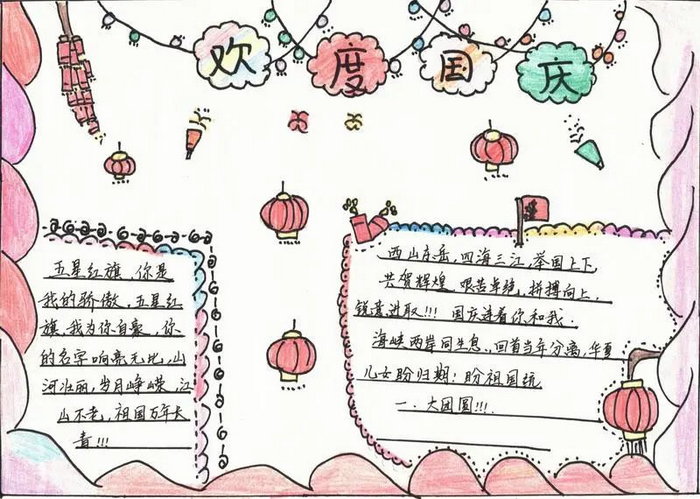 欢度国庆
五星红旗，你是
我的骄傲，五星红
旗，我为你自豪，你
的名字响亮无比，山
河壮丽，岁月峥嵘，江
山不老，祖国万年长
青!!!
西山东岳，四海三江，举国上下，
共贺辉煌 艰苦卓绝，拼搏向上，
锐意进取!!! 国庆连着你和我.
海峡两岸同生息，回首当年分离，华夏
儿女盼归期；盼祖国统
一、大团圆!!!